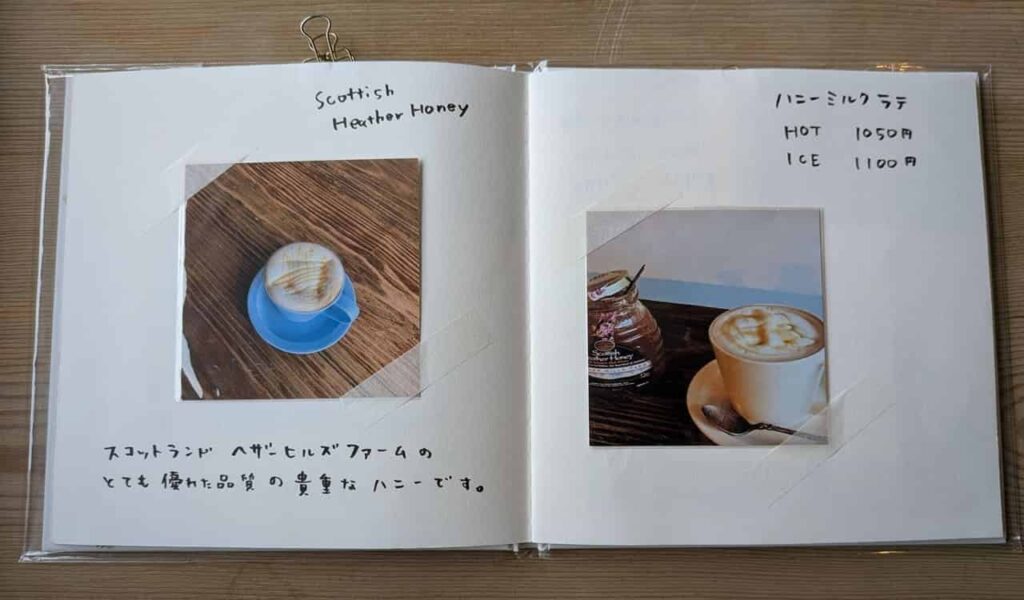 Scottish
Heather Honey
スコットランド ヘザーヒルズファームの
とても優れた品質の貴重なハニーです。
ハニーミルクラテ
HOT 1050円
ICE 1100円
Scottish
Heather Honey